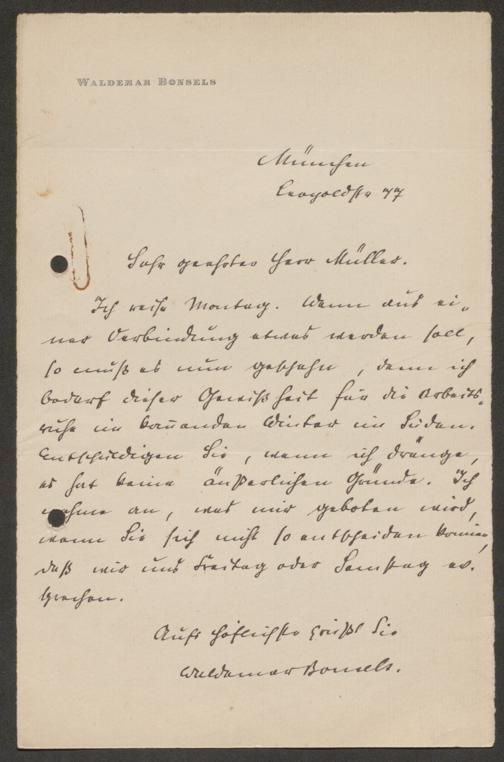 WALDEMAR BONSELS
München
Leopoldstr 77
Sehr geehrter Herr Müller.
Ich reise Montag. Wenn aus ei-
ner Verbindung etwas werden soll,
so muß es nun geschehn, denn ich
bedarf dieser Gewißheit für die Arbeits-
ruhe im kom̅enden Winter im Süden.
Entschuldigen Sie, wenn ich dränge,
es hat keine äußerlichen Gründe. Ich
nehme an, was mir geboten wird,
wenn Sie sich nicht so entscheiden können,
daß wir uns Freitag oder Samstag
sprechen.
Aufs höflichste grüßt Sie
Waldemar Bonsels.